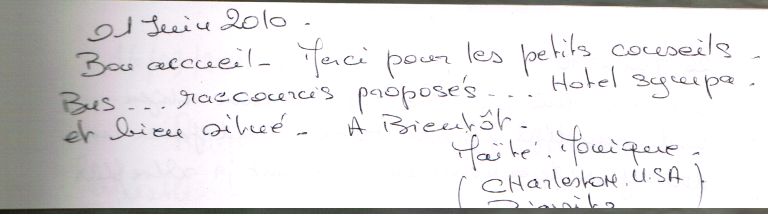 01 Juin 2010.
Bon accueil - Merci pour les petits conseils -
Bus... raccourcis proposés... Hotel sympa.
et bien situé - A Bientôt -
Maïté. Monique.
(CHarleston. U.SA)